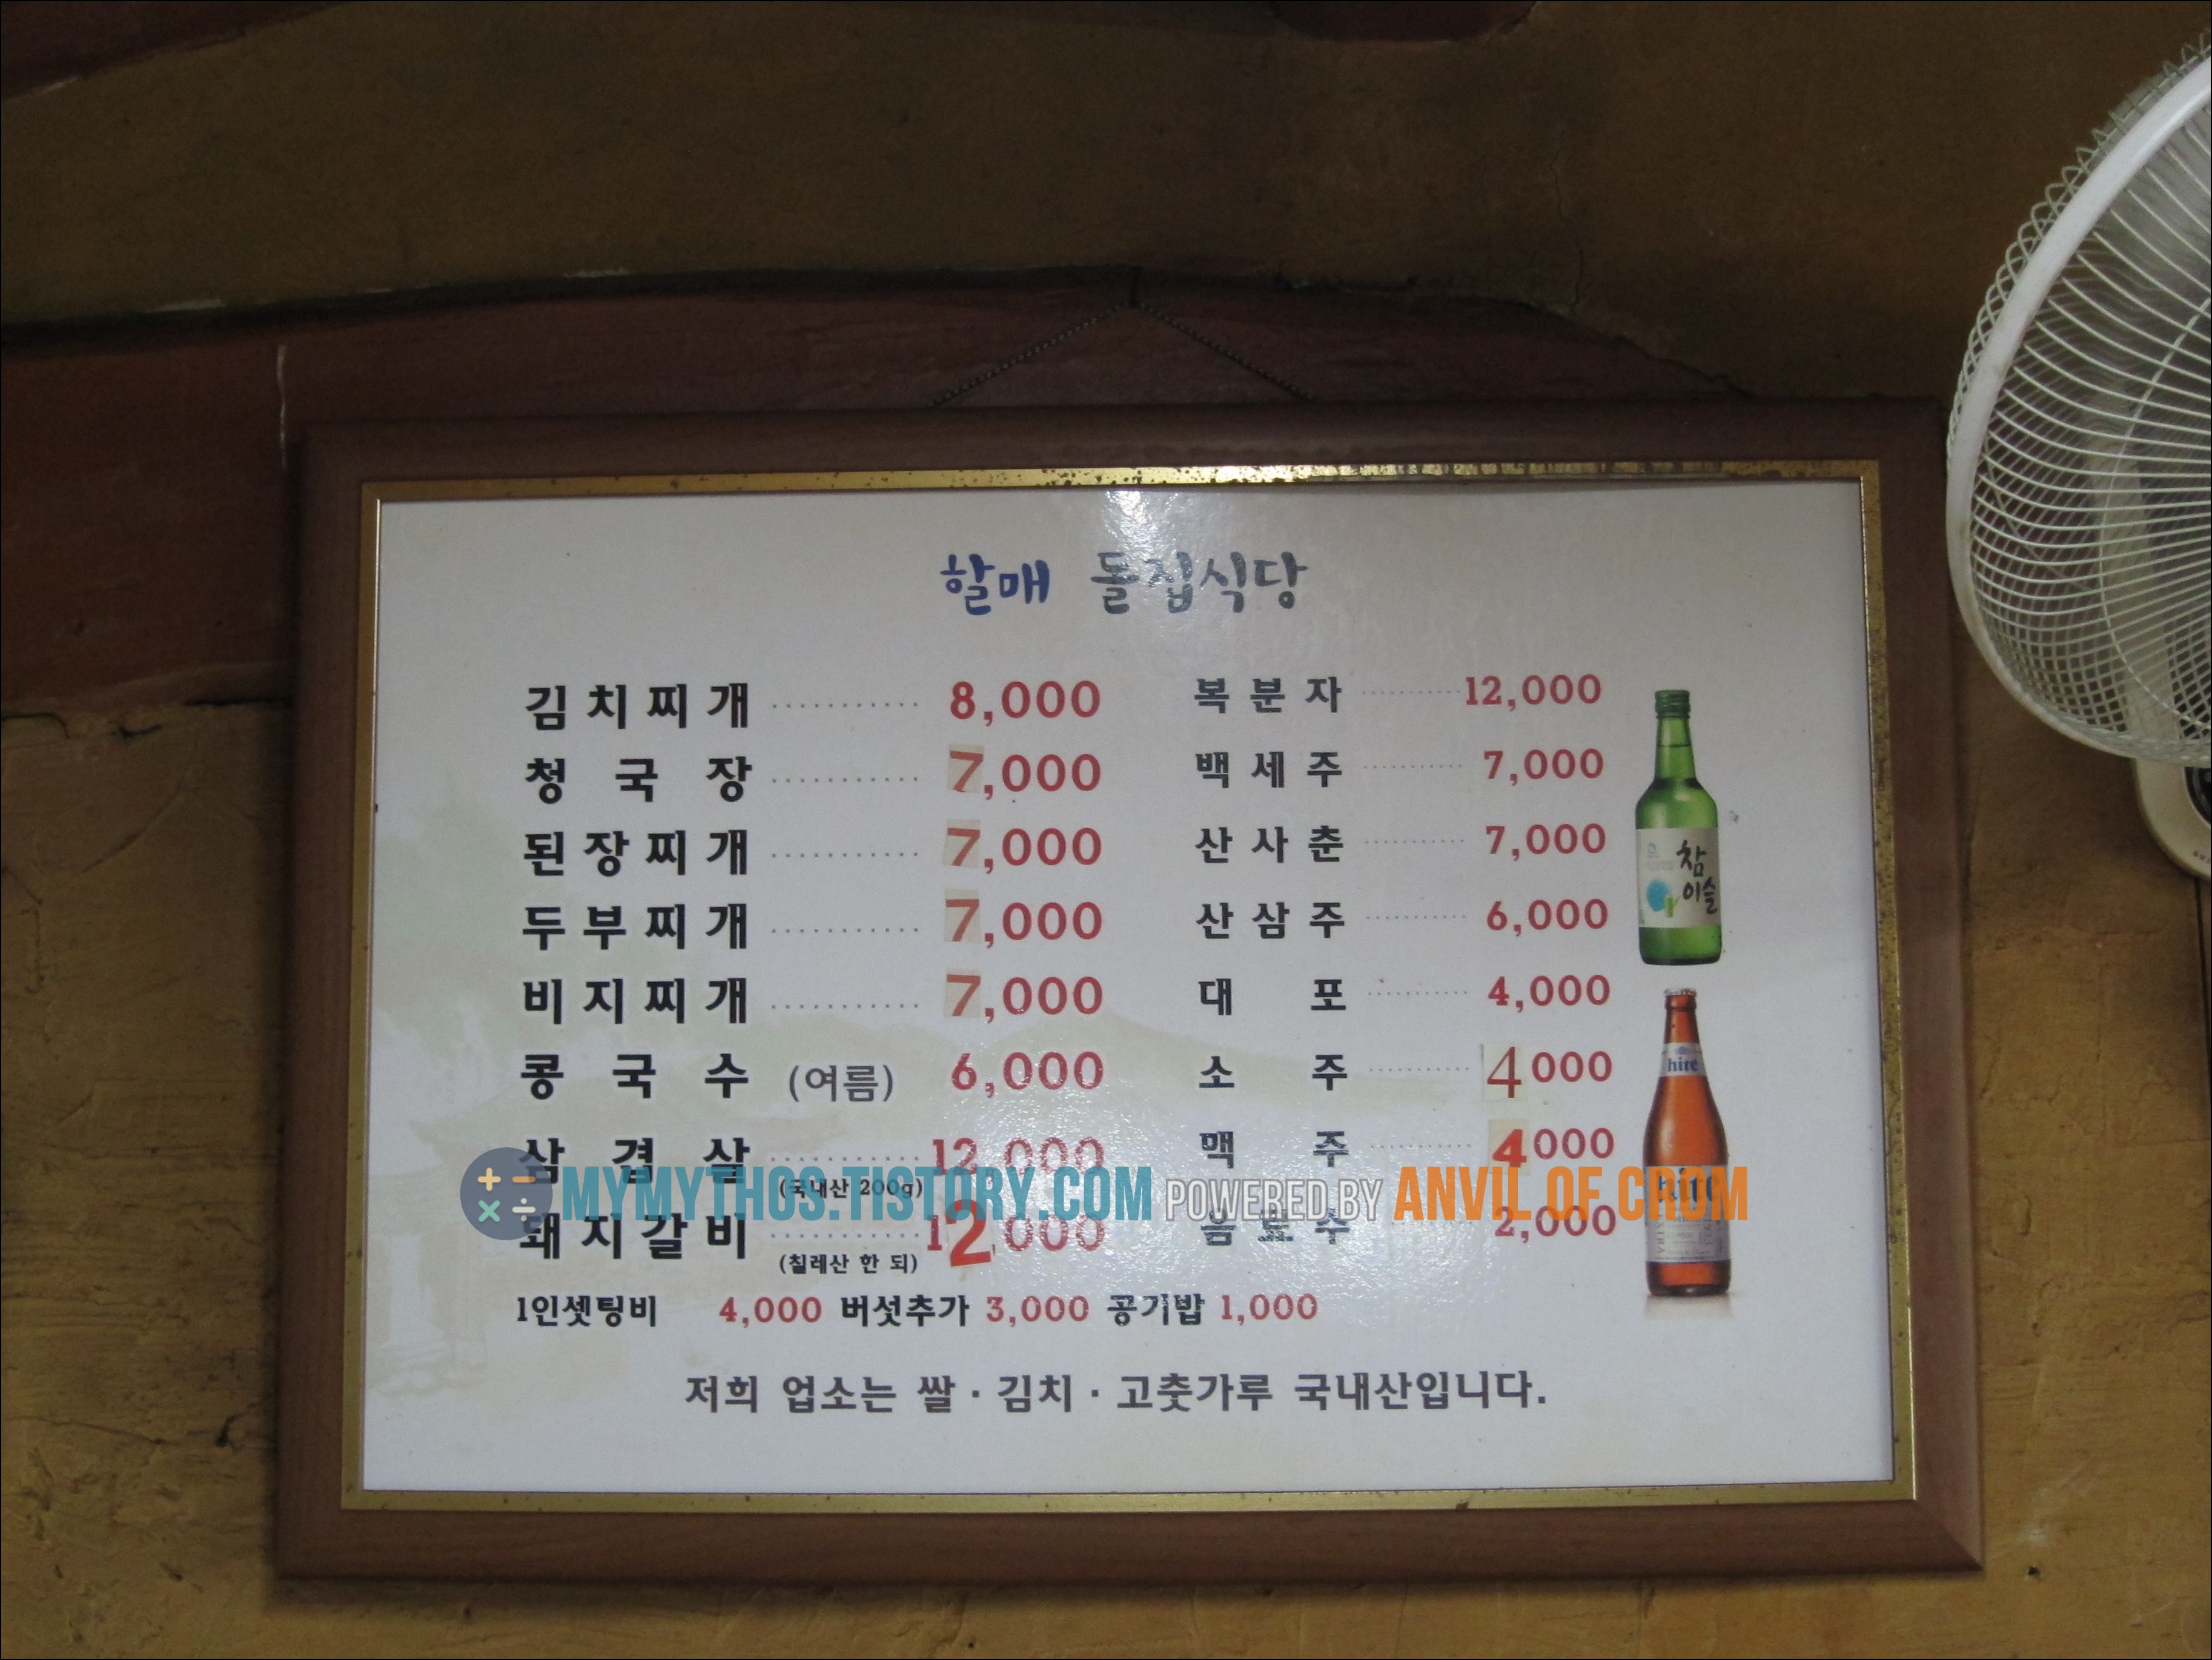 할매 돌집식당
김치찌개 8,000
청국장 7,000
된장찌개 7,000
두부찌개 7,000
비지찌개 7,000
콩국수 (여름) 6,000
삼겹살 12,000
(국내산 200g)
돼지갈비 12,000
(칠레산 한 되)
복분자 12,000
백세주 7,000
산사춘 7,000
산삼주 6,000
대포 4,000
소주 4000
맥주 4000
음료수 2,000
1인셋팅비 4,000 버섯추가 3,000 공기밥 1,000
저희 업소는 쌀·김치·고춧가루 국내산입니다.
참이슬
hite
hite
MYMYTHOS.TISTORY.COM POWERED BY ANVIL OF CROM